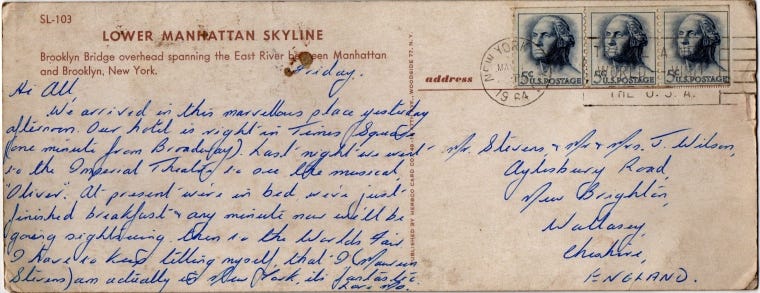 SL-103
LOWER MANHATTAN SKYLINE
Brooklyn Bridge overhead spanning the East River between Manhattan
and Brooklyn, New York.
Friday.
Hi All
We arrived in this marvellous place yesterday
afternoon. Our hotel is right in Times Square
(one minute from Broadway). Last night we went
to the Imperial Theatre to see the musical
"Oliver". At present we're in bed, we've just
finished breakfast & any minute now will be
going sightseeing then to the Worlds Fair.
I have to keep telling myself that I (Maureen
Stevens) am actually in New York, its fantastic.
Love Mo.
PUBLISHED BY HERBCO CARD CO. WOODSIDE 77, N.Y.
address
NEW YORK
1964
THE U.S.A.
5¢ U.S. POSTAGE
5¢ U.S. POSTAGE
5¢ U.S. POSTAGE
Mr. Stevens & Mr & Mrs. J. Wilson,
Aylesbury Road,
New Brighton,
Wallasey,
Cheshire,
ENGLAND.